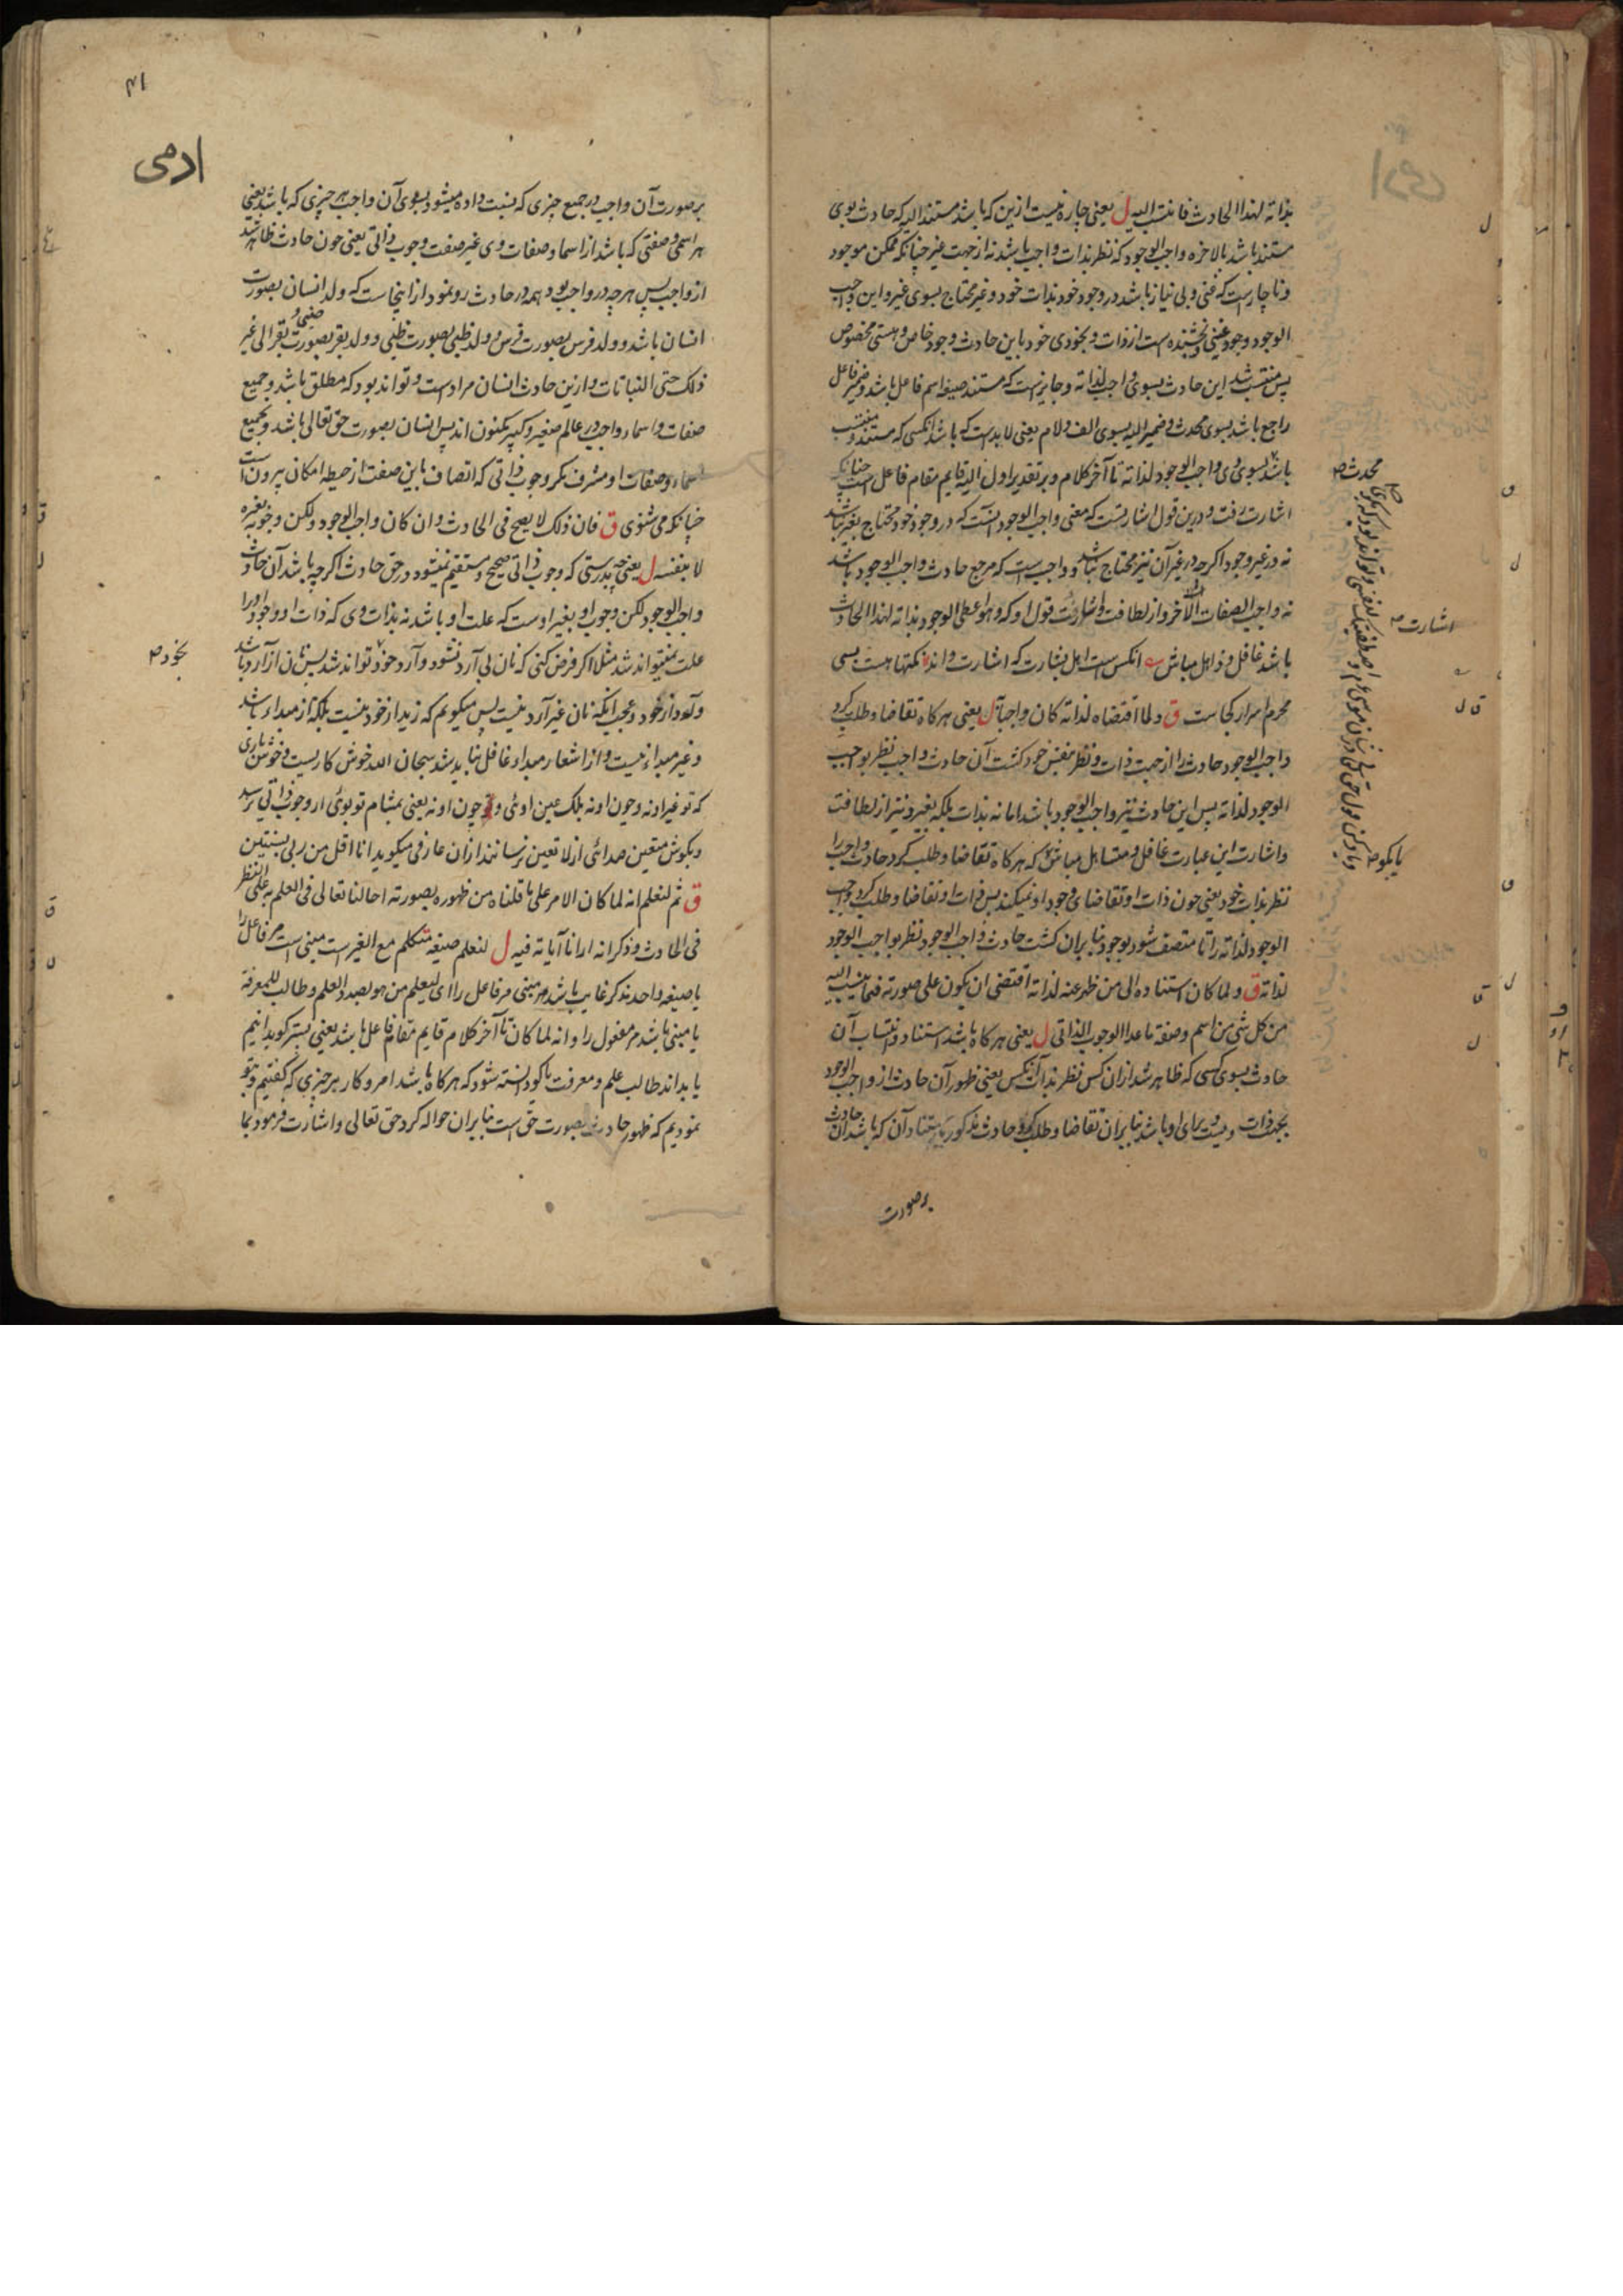 بذاته لهذا الحادث فانتسب الیه ل یعنی چاره نیست ازین که باشد مستند الیه که حادث بوی
مستند باشد بالاخره واجب الوجود که نظر بذات واجب باشد نه از جهت غیر چنانکه ممکن موجود
و ناچارست که غنی و بی نیاز باشد در وجود خود بذات خود و غیر محتاج بسوی غیر و این واجب
الوجود وجود غنی و بخشنده است از ذات و بخودی خود باین حادث وجود خاص و هستی مخصوص
پس منتسب شد این حادث بسوی واجب لذاته و جایز است که مستند صیغه اسم فاعل باشد و ضمیر فاعل
راجع باشد بسوی محدث و ضمیر الیه بسوی الف و لام یعنی لابدست که باشد آنکسی که مستند و منتسب
باشد بسوی وی واجب الوجود لذاته تا آخر کلام و بر تقدیر اول الیه قایم مقام فاعل است چنانکه
اشارت رفت و درین قول اشارتست که معنی واجب الوجود آنست که در وجود خود محتاج بغیر نباشد
نه در غیر وجود اگرچه در غیر آن نیز محتاج نباشد و واجب است که مرجع حادث واجب الوجود باشد
نه واجب الصفات الاخر و از لطافت و اشارت قول او که و هو اعطی الوجود بذاته لهذا الحادث
باشد غافل و ذاهل مباش آنکس است اهل بشارت که اشارت داند نکتها هست بسی
محرم اسرار کجاست ق و لما اقتضاه لذاته کان واجبا به ل یعنی هرگاه تقاضا و طلب کرد
واجب الوجود حادث را از جهت ذات و نظر بنفس خود گشت آن حادث واجب نظر بواجب
الوجود لذاته پس این حادث نیز واجب الوجود باشد اما نه بذات بلکه بغیر و نیز از لطافت
و اشارت این عبارت غافل و متساهل مباش که هرگاه تقاضا و طلب کرد حادث واجب را
نظر بذات خود یعنی چون ذات او تقاضای وجود او نمیکند پس ذات او تقاضا و طلب کرد واجب
الوجود لذاته را تا متصف شود بوجود بنابران گشت حادث واجب الوجود نظر بواجب الوجود
لذاته ق و لما کان استناده الی من ظهر عنه لذاته اقتضی ان یکون علی صورته فیما ینسب الیه
من کل شی من اسم و صفة ما عدا الوجوب الذاتی ل یعنی هرگاه باشد استناد و انتساب آن
حادث بسوی کسی که ظاهر شد ازان کس نظر بذات آنکس یعنی ظهور آن حادث از واجب الوجود
بجهت ذات ویست برای او باشد بنابران تقاضا و طلب کرد حادث مذکور استناد آن که باشد آن حادث
بر صورت
محدث ص
اشارت ص
یا بگو ص
۴۱
ادمی
بر صورت آن واجب در جمیع چیزی که نسبت داده میشود بسوی آن واجب هر چیزی که باشد یعنی
هر اسمی و صفتی که باشد از اسما و صفات وی غیر صفت وجوب ذاتی یعنی چون حادث ظاهر شد
از واجب پس هرچه در واجب بود همه در حادث رو نمود از اینجاست که ولد انسان بصورت
انسان باشد و ولد فرس بصورت فرس و ولد ظبی بصورت ظبی و ولد بقر بصورت بقر الی غیر
ذلک حتی النباتات و ازین حادث انسان مرادست و تواند بود که مطلق باشد و جمیع
صفات و اسماء واجب در عالم صغیر و کبیر مکنون اند پس انسان بصورت حق تعالی باشد و بجمیع
اسماء و صفات او مشرف مگر وجوب ذاتی که اتصاف باین صفت از حیطه امکان بیرون است
چنانکه می شنوی ق فان ذلک لا یصح فی الحادث و ان کان واجب الوجود و لکن وجوبه بغیره
لا بنفسه ل یعنی بدرستی که وجوب ذاتی صحیح و مستقیم نمیشود در حق حادث اگرچه باشد آن حادث
واجب الوجود لکن وجوب او بغیر اوست که علت او باشد نه بذات وی که ذات او وجود او را
علت نمیتواند شد مثلا اگر فرض کنی که نان بی آرد نشود و آرد خود تواند شد پس نان از آرد باشد
و آرد از خود و عجب اینکه نان غیر آرد نیست پس میگویم که زید از خود نیست بلکه از مبداء باشد
و غیر مبداء نیست و از اشعار مبداء غافل نباید شد سبحان الله خوش کاریست و خوش بازی
که تو غیر او نه و چون او نه بلک عین اوئی و چون او نه یعنی بمشام تو بوئی از وجوب ذاتی نرسد
و بگوش متعین صدائی از لا تعین نرسانند ازان عارفی میگوید انا اقل من ربی بسنتین
ق ثم لتعلم انه لما کان الامر علی ما قلناه من ظهوره بصورته احالنا تعالی فی العلم به علی النظر
فی الحادث و ذکر انه ارانا آیاته فیه ل لنعلم صیغه متکلم مع الغیر است مبنی است مر فاعل را
یا صیغه واحد مذکر غایب باشد هم مبنی مر فاعل را ای لیعلم من هو بصدد العلم و طالب للمعرفة
یا مبنی باشد مر مفعول را و انه لما کان تا آخر کلام قایم مقام فاعل باشد یعنی پستر گوید انیم
یا بداند طالب علم و معرفت یا گو دانسته شود که هرگاه باشد امر و کار بر چیزی که گفتیم و بتو
نمودیم که ظهور حادث بصورت حق است بنابران حواله کرد حق تعالی و اشارت فرمود بما
بخود ص